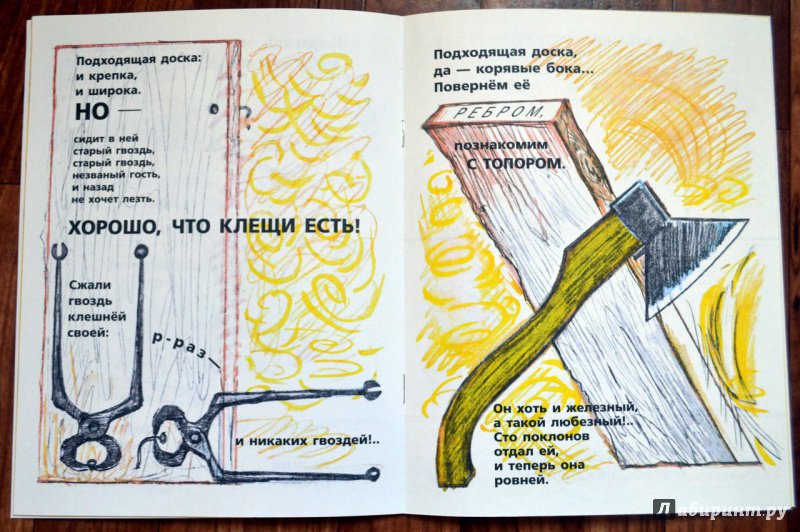 Подходящая доска:
и крепка,
и широка.
НО —
сидит в ней
старый гвоздь,
старый гвоздь,
незваный гость,
и назад
не хочет лезть.
ХОРОШО, ЧТО КЛЕЩИ ЕСТЬ!
Сжали
гвоздь
клешнёй
своей:
р-раз—
и никаких гвоздей!..
Подходящая доска,
да — корявые бока...
Повернём её
РЕБРОМ,
познакомим
С ТОПОРОМ.
Он хоть и железный,
а такой любезный!..
Сто поклонов
отдал ей,
и теперь она
ровней.
Лабиринт.ру